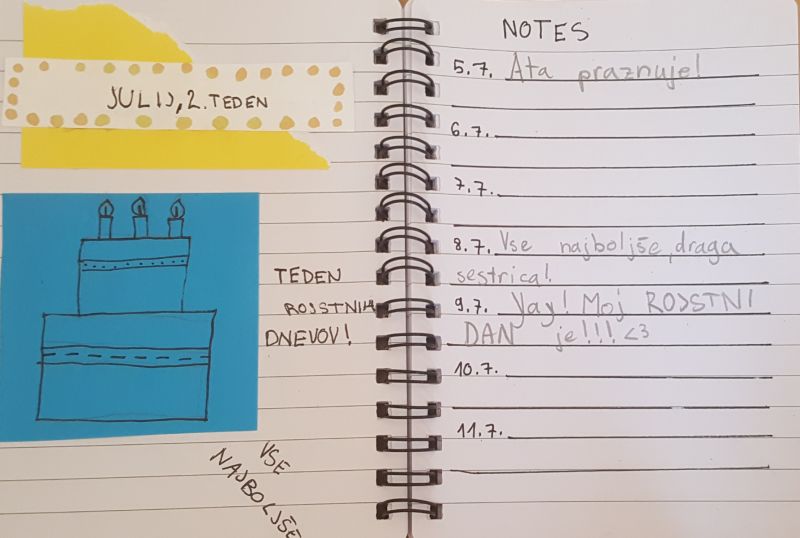 JULIJ, 2. TEDEN
TEDEN
ROJSTNIH
DNEVOV!
VSE
NAJBOLJŠE
NOTES
5.7. Ata praznuje!
6.7.
7.7.
8.7. Vse najboljše, draga
sestrica!
9.7. Yay! Moj ROJSTNI
DAN je!!! <3
10.7.
11.7.